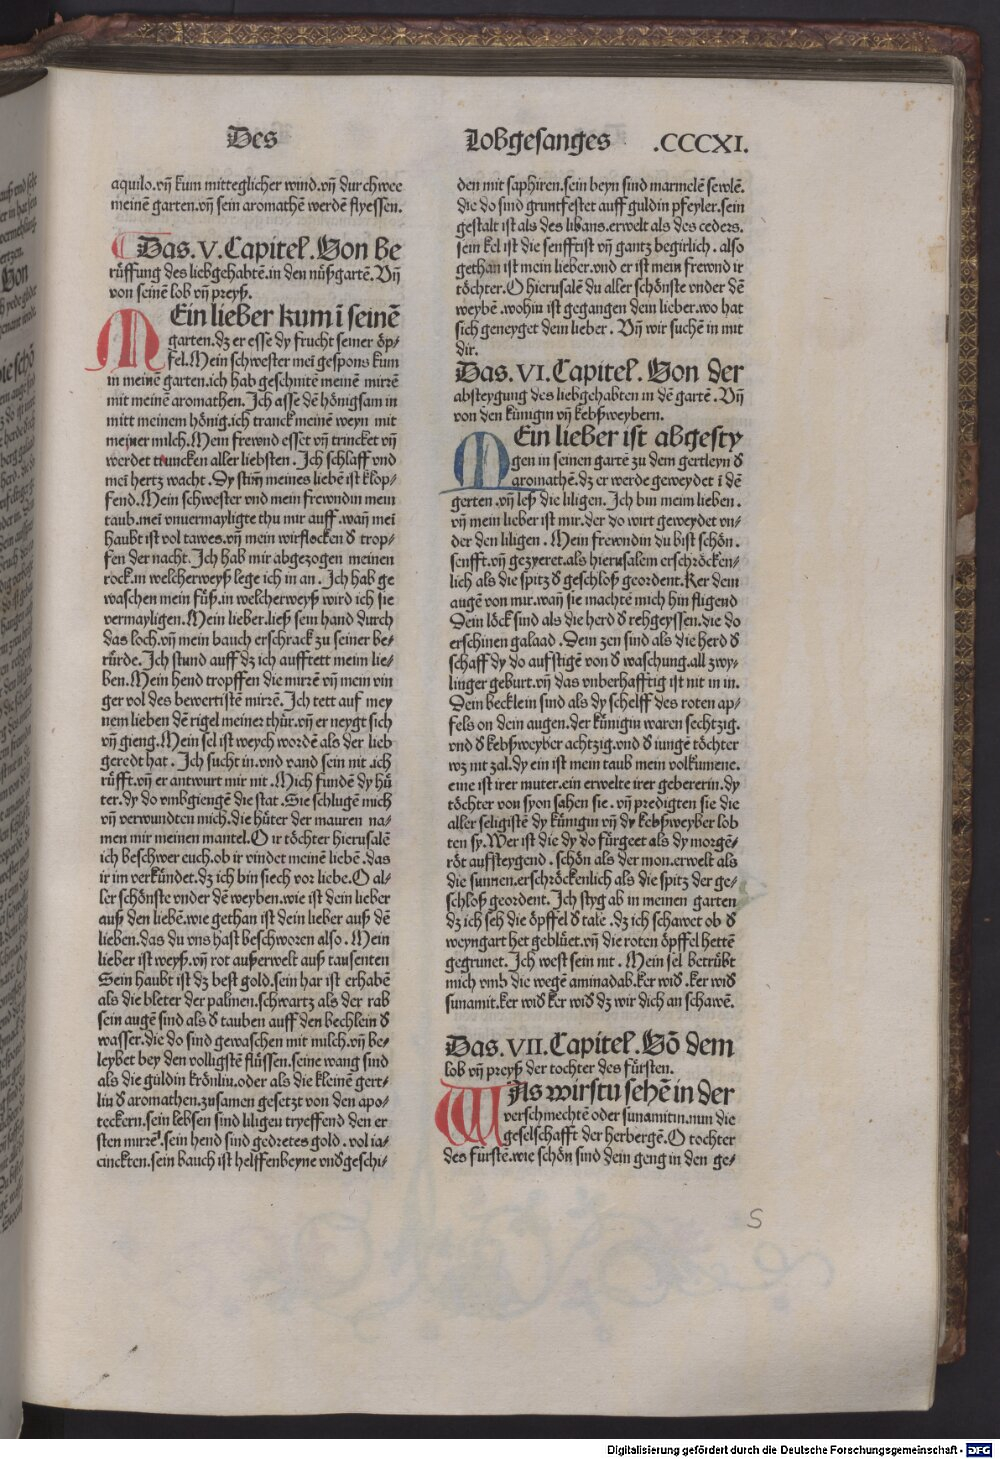 Des Lobgesanges .CCCXI.
aquilo.vñ kum mitteglicher wind.vñ durchwee
meinẽ garten.vñ sein aromathẽ werdẽ flyessen.
Das.V.Capitel.Von be
rüffung des liebgehabtẽ.in den nüßgartẽ.Vñ
von seinẽ lob vñ preyß.
MEin lieber kum ĩ seinẽ
garten.dz er esse dy frucht seiner öp-
fel.Mein schwester meĩ gespons kum
in meinẽ garten.ich hab geschnitẽ meinẽ mirrẽ
mit meinẽ aromathen.Ich asse dẽ hönigsam in
mitt meinem hönig.ich tranck meinẽ weyn mit
meiner milch.Mein frewnd esset vñ trincket vñ
werdet truncken aller liebsten.Ich schlaff vnd
meĩ hertz wacht.Dy stim̃ meines liebẽ ist klop-
fend.Mein schwester vnd mein frewndin mein
taub.meĩ vnuermayligte thu mir auff.wañ meĩ
haubt ist vol tawes.vñ mein wirflocken d̕ trop-
fen der nacht.Ich hab mir abgezogen meinen
rock.in welcherweyß lege ich in an.Ich hab ge
waschen mein füß.in welcherweyß wird ich sie
vermayligen.Mein lieber.ließ sein hand durch
das loch.vñ mein bauch erschrack zu seiner be-
rürde.Ich stund auff dz ich aufftett meim lie-
ben.Mein hend tropffen die mirrẽ vñ mein vin
ger vol des bewertistẽ mirrẽ.Ich tett auf mey
nem lieben dẽ rigel meiner thür.vñ er neygt sich
vñ gieng.Mein sel ist weych wordẽ als der lieb
geredt hat.Ich sucht in.vnd vand sein nit.ich
rüfft.vñ er antwurt mir nit.Mich fundẽ dy hü
ter.dy do vmbgiengẽ die stat.Sie schlugẽ mich
vñ verwundten mich.die hüter der mauren na-
men mir meinen mantel.O ir töchter hierusalẽ
ich beschwer euch.ob ir vindet meinẽ liebẽ.das
ir im verkündet.dz ich bin siech vor liebe.O al-
ler schönste vnder dẽ weyben.wie ist dein lieber
auß den liebẽ.wie gethan ist dein lieber auß dẽ
lieben.das du vns hast beschworen also.Mein
lieber ist weyß.vñ rot außerwelt auß tausenten
Sein haubt ist dz best gold.sein har ist erhabẽ
als die bleter der palmen.schwartz als der rab
sein augẽ sind als d̕ tauben auff den bechlein d̕
wasser.die do sind gewaschen mit milch.vñ be-
leybet bey den volligstẽ flüssen.seine wang sind
als die güldin krönlin.oder als die kleinẽ gert-
lin d̕ aromathen.zusamen gesetzt von den apo-
teckern.sein lebsen sind liligen tryeffend den er
sten mirrẽ.sein hend sind gedretes gold.vol ia-
cinckten.sein bauch ist helffenbeyne vndgeschi-
den mit saphiren.sein beyn sind marmelẽ sewlẽ.
die do sind gruntfestet auff guldin pfeyler.sein
gestalt ist als des libans.erwelt als des ceders.
sein kel ist die senfftist vñ gantz begirlich.also
gethan ist mein lieber.vnd er ist mein frewnd ir
töchter.O hierusalẽ du aller schönste vnder dẽ
weybẽ.wohin ist gegangen dein lieber.wo hat
sich geneyget dein lieber.Vñ wir suchẽ in mit
dir.
Das.VI.Capitel.Von der
absteygung des liebgehabten in dẽ gartẽ.Vñ
von den künigin vñ kebßweybern.
MEin lieber ist abgesty
gen in seinen gartẽ zu dem gertleyn d̕
aromathẽ.dz er werde geweydet ĩ dẽ
gerten.vñ leß die liligen.Ich bin meim lieben.
vñ mein lieber ist mir.der do wirt geweydet vn-
der den liligen.Mein frewndin du bist schön.
senfft.vñ gezyeret.als hierusalem erschröcken-
lich als die spitz d̕ geschloß geordent.Ker dein
augẽ von mir.wañ sie machtẽ mich hin fligend
Dein löck sind als die herd d̕ rehgeyssen.die do
erschinen galaad.Dein zen sind als die herd d̕
schaff dy do aufstigẽ von d̕ waschung.all zwy-
linger geburt.vñ das vnberhafftig ist nit in in.
Dein becklein sind als dy schelff des roten ap-
fels on dein augen.der künigin waren sechtzig.
vnd d̕ kebßweyber achtzig.vnd d̕ iungẽ töchter
wz nit zal.dy ein ist mein taub mein volkumene.
eine ist irer muter.ein erwelte irer gebererin.dy
töchter von syon sahen sie.vñ predigten sie die
aller seligistẽ dy künigin vñ dy kebßweyber lob
ten sy.Wer ist die dy do fürgeet als dy morgẽ-
röt aufsteygend.schön als der mon.erwelt als
die sunnen.erschröckenlich als die spitz der ge-
schloß geordent.Ich styg ab in meinen garten
dz ich seh die öpffel d̕ tale.dz ich schawet ob d̕
weyngart het geblüet.vñ die roten öpffel hettẽ
gegrunet.Ich west sein nit.Mein sel betrübt
mich vmb die wegẽ aminadab.ker wid̕.ker wid̕
sunamit.ker wid̕ ker wid̕ dz wir dich an schawẽ.
Das.VII.Capitel.Võ dem
lob vñ preyß der tochter des fürsten.
WAs wirstu sehẽ in der
verschmechtẽ oder sunamitin.nun die
geselschafft der herbergẽ.O tochter
des fürstẽ.wie schön sind dein geng in den ge-
S
Digitalisierung gefördert durch die Deutsche Forschungsgemeinschaft - DFG